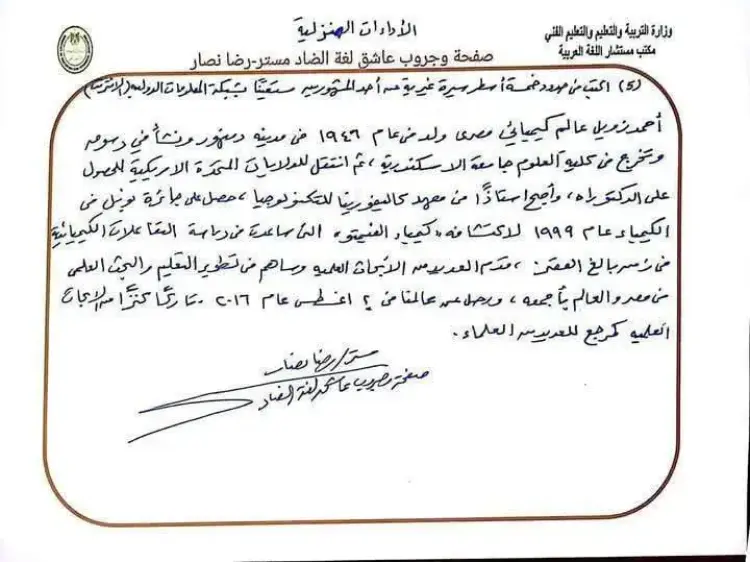 وزارة التربية والتعليم والتعليم الفني
مكتب مستشار اللغة العربية
الأداءات المنزلية
صفحة وجروب عاشق لغة الضاد مستر-رضا نصار
(٥) اكتب من حدود خمسة أسطر سيرة غيرية عن أحد المشهورين مستعينًا بشبكة المعلومات الدولية (الانترنت)
أحمد زويل عالم كيميائي مصرى ولد فى عام ١٩٤٦ فى مدينه دمنهور ونشأ فى دسوق
وتخرج من كليه العلوم جامعة الاسكندرية، ثم انتقل للولايات المتحدة الامريكية للحصول
على الدكتوراه، وأصبح استاذًا فى معهد كاليفورنيا للتكنولوجيا، حصل على جائزة نوبل فى
الكيمياء عام ١٩٩٩ لاكتشافه «كيمياء الفيمتو» التى ساعدت فى دراسة التفاعلات الكيميائية
فى زمن بالغ الصغر، قدم العديد من الأبحاث العلميه وساهم فى تطوير التعليم والبحث العلمى
فى مصر والعالم بأجمعه، ورحل عن عالمنا فى ٢ اغسطس عام ٢٠١٦ تاركًا كنزًا من الابحاث
العلميه كمرجع للعديد من العلماء.
مستر/رضا نصار
صفحة وجروب عاشق لغة الضاد